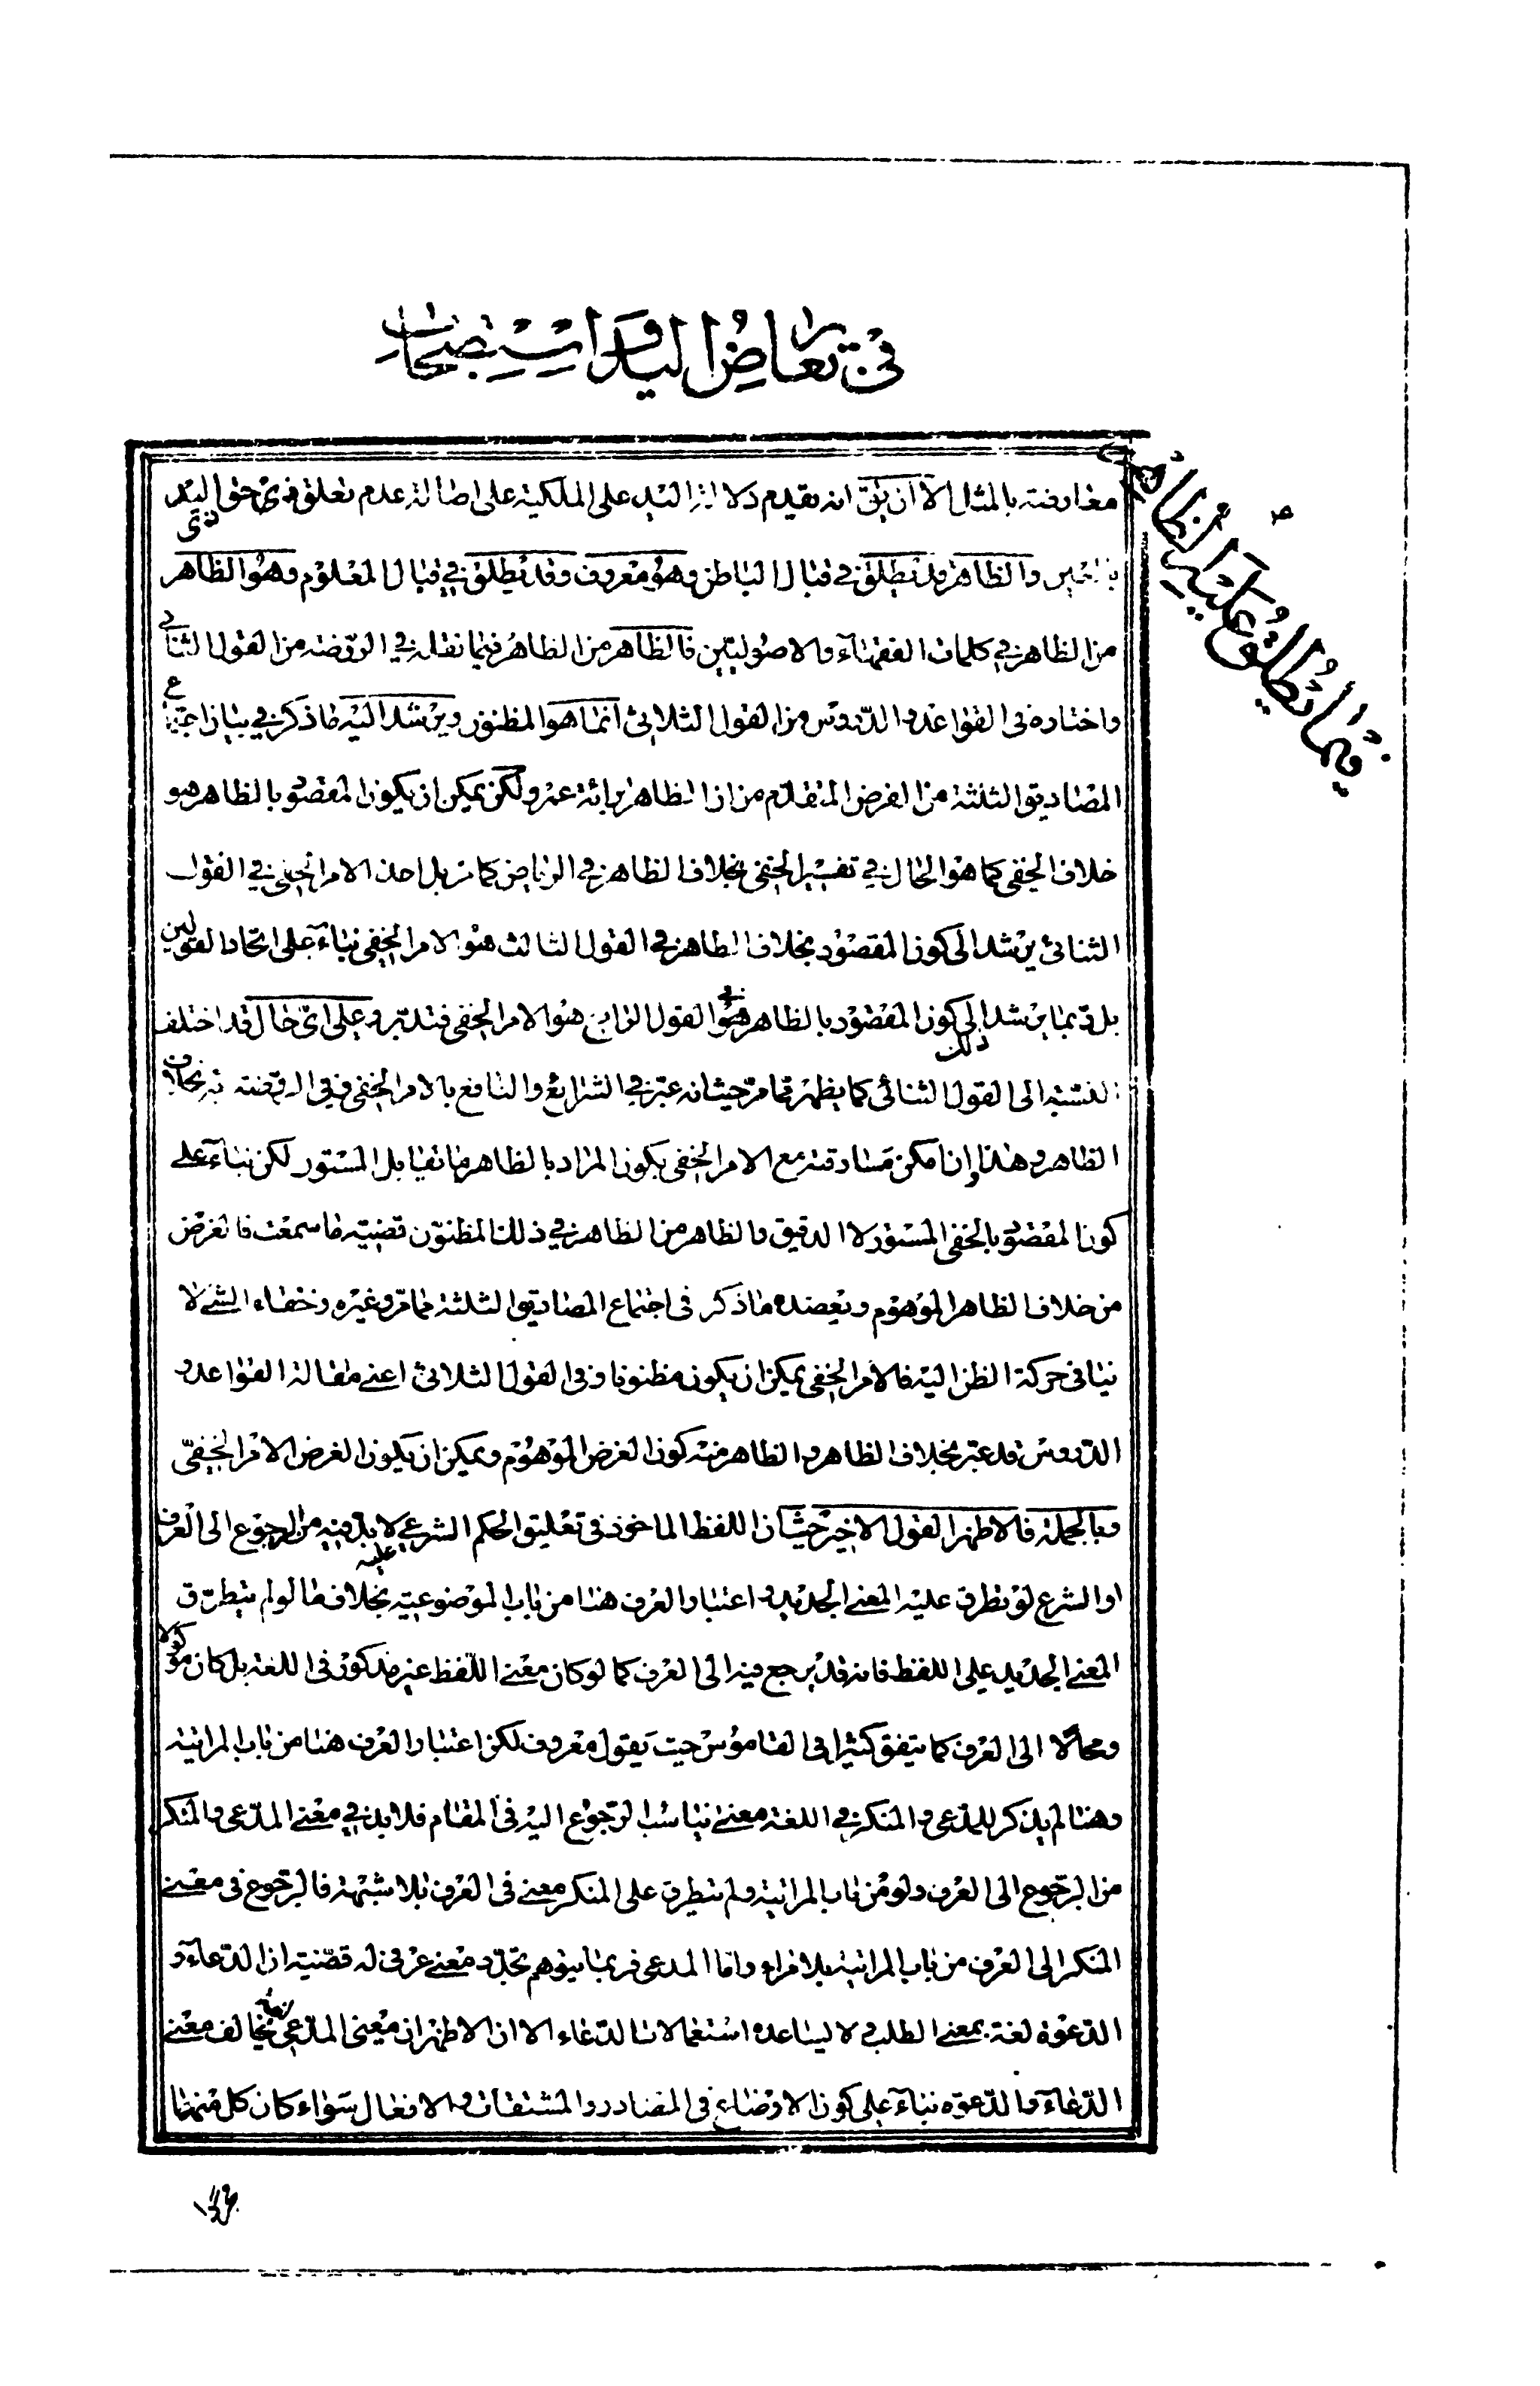 في تعارض اليد والاستصحاب
فيما يطلق عليه الظاهر
معارضته بالمثل الا ان يق انه يقدم دلالة اليد على الملكية على اصالة عدم تعلق حق اليد
والظاهر قد يطلق في قبال الباطن وهو معروف وقد يطلق في قبال المعلوم وهو الظاهر
من الظاهر في كلمات الفقهاء والاصوليين فالظاهر من الظاهر فيما نقله في الروضة من القول الثنائي
واختاره في القواعد والدروس من القول الثلاثي انما هو المظنون ويرشد اليه ما ذكر في بيان اجتماع
المصاديق الثلثة من الفرض المتقدم من ان الظاهر برائة عمرو لكن يمكن ان يكون المقصود بالظاهر هو
خلاف الخفي كما هو الحال في تفسير الخفي بخلاف الظاهر في الرياض كما مر بل اخذ الامر الخفي في القول
الثنائي يرشد الى كون المقصود بخلاف الظاهر في القول الثالث هو الامر الخفي بناء على اتحاد القولين
بل ربما يرشد الى كون المقصود بالظاهر في القول الرابع هو الامر الخفي فتدبر وعلى اي حال قد اختلف
النسبة الى القول الثنائي كما يظهر مما مر حيث انه عبر في الشرائع والنافع بالامر الخفي وفي الروضة بخلاف
الظاهر وهذا وان امكن مصادقته مع الامر الخفي بكون المراد بالظاهر ما يقابل المستور لكن بناء على
كون المقصود بالخفي المستور لا الدقيق والظاهر من الظاهر في ذلك المظنون قضية ما سمعت فالغرض
من خلاف الظاهر الموهوم ويعضده ما ذكر في اجتماع المصاديق الثلثة مما مر وغيره وخفاء الشئ لا
ينافي حركة الظن اليه فالامر الخفي يمكن ان يكون مظنونا وفي القول الثلاثي اعني مقالة القواعد و
الدروس قد عبر بخلاف الظاهر والظاهر منه كون الغرض الموهوم ويمكن ان يكون الغرض الامر الخفي
وبالجملة فالاظهر القول الاخير حيث ان اللفظ الماخوذ في تعليق الحكم الشرعي عليه لا بد فيه من الرجوع الى العرف
او الشرع لو تطرق عليه المعنى الجديد و اعتبار العرف هنا من باب الموضوعية بخلاف ما لو لم يتطرق
المعنى الجديد على اللفظ فانه قد يرجع فيه الى العرف كما لو كان معنى اللفظ غير مذكور في اللغة بل كان موكولا
ومحالا الى العرف كما يتفق كثيرا في القاموس حيث يقول معروف لكن اعتبار العرف هنا من باب المراتية
وهنا لم يذكر للمدعي والمنكر في اللغة معنى يناسب الرجوع اليه في المقام فلا بد في معنى المدعي والمنكر
من الرجوع الى العرف ولو من باب المراتية ولم يتطرق على المنكر معنى في العرف بلا شبهة فالرجوع في معنى
المنكر الى العرف من باب المراتية بلا مراء واما المدعي فربما يتوهم تجدد معنى عرفي له قضية ان الدعاء و
الدعوة لغة بمعنى الطلب ولا يساعده استعمالات الدعاء الا ان الاظهر ان معنى المدعي يخالف معنى
الدعاء والدعوة بناء على كون الاوضاع في المصادر والمشتقات والافعال سواء كان كل منهما